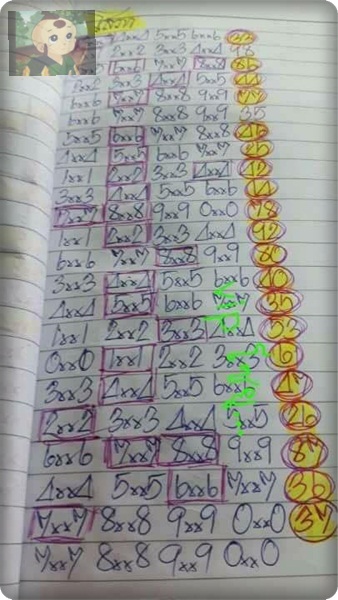 4xx4 5xx5 6xx6
2xx2 3xx3 4xx4 98
6xx6 7xx7 8xx8 86
2xx2 3xx3 4xx4 5xx5 44
6xx6 7xx7 8xx8 9xx9 77
6xx6 7xx7 8xx8 9xx9 35
5xx5 6xx6 7xx7 8xx8 46
4xx4 5xx5 6xx6 7xx7 25
1xx1 2xx2 3xx3 4xx4 42
3xx3 4xx4 5xx5 6xx6 44
7xx7 8xx8 9xx9 0xx0 78
1xx1 2xx2 3xx3 4xx4 92
6xx6 7xx7 8xx8 9xx9 80
3xx3 4xx4 5xx5 6xx6 40
4xx4 5xx5 6xx6 7xx7 35
1xx1 2xx2 3xx3 4xx4 53
0xx0 1xx1 2xx2 3xx3 16
3xx3 4xx4 5xx5 6xx6 47
2xx2 3xx3 4xx4 5xx5 26
6xx6 7xx7 8xx8 9xx9 87
4xx4 5xx5 6xx6 7xx7 36
7xx7 8xx8 9xx9 0xx0 37
7xx7 8xx8 9xx9 0xx0